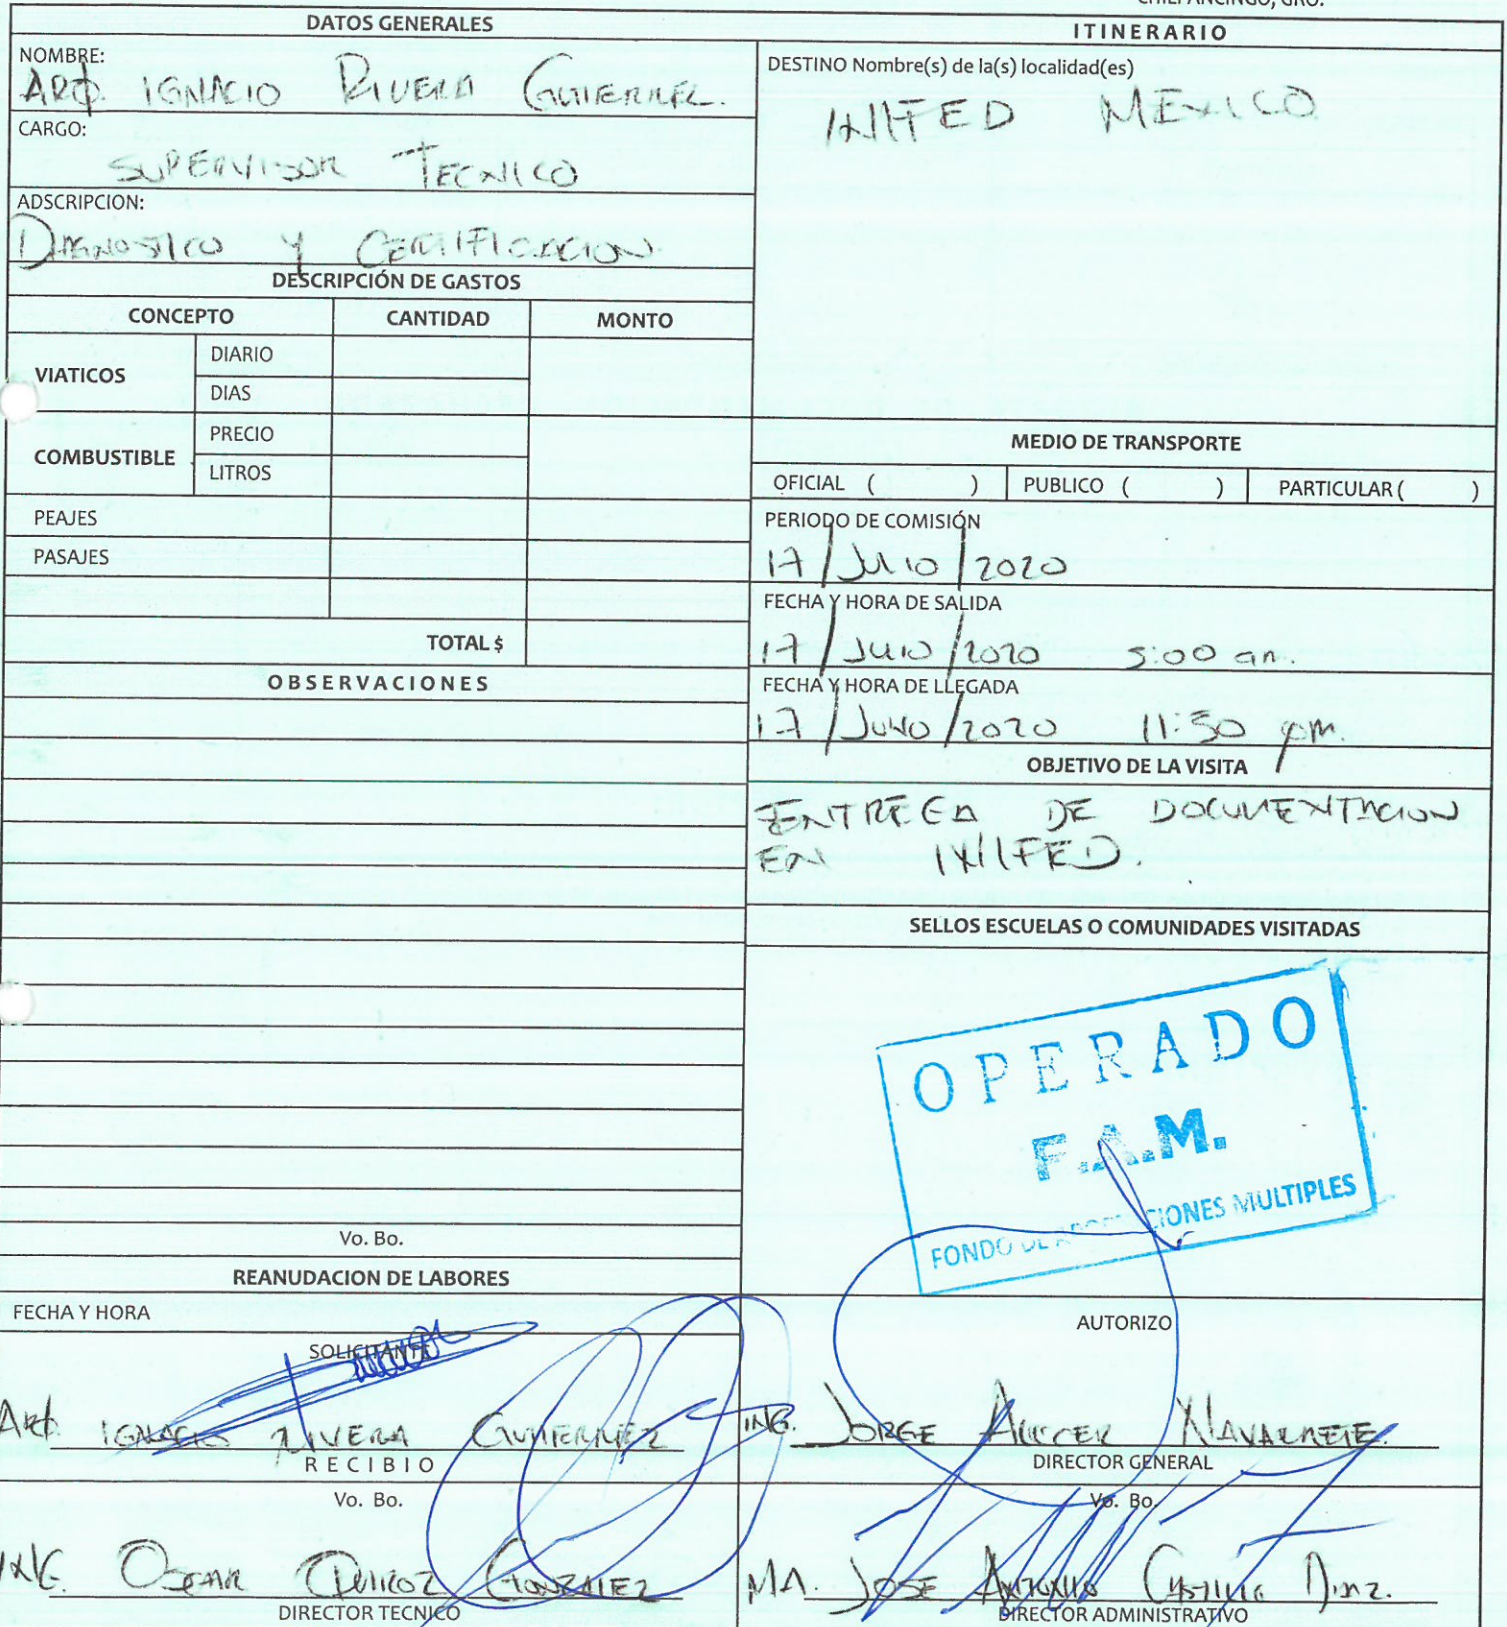 CHILPANCINGO, GRO.
DATOS GENERALES
NOMBRE:
ARQ. IGNACIO RIVERA GUTIERREZ.
CARGO:
SUPERVISOR TECNICO
ADSCRIPCION:
DIAGNOSTICO Y CERTIFICACION
DESCRIPCIÓN DE GASTOS
CONCEPTO CANTIDAD MONTO
VIATICOS
DIARIO
DIAS
COMBUSTIBLE
PRECIO
LITROS
PEAJES
PASAJES
TOTAL $
OBSERVACIONES
Vo. Bo.
REANUDACION DE LABORES
FECHA Y HORA
SOLICITANTE
ARQ. IGNACIO RIVERA GUTIERREZ
RECIBIO
Vo. Bo.
ING. OSCAR QUIROZ GONZALEZ
DIRECTOR TECNICO
ITINERARIO
DESTINO Nombre(s) de la(s) localidad(es)
INIFED MEXICO
MEDIO DE TRANSPORTE
OFICIAL ( ) PUBLICO ( ) PARTICULAR ( )
PERIODO DE COMISIÓN
17/Julio/2020
FECHA Y HORA DE SALIDA
17/Julio/2020 5:00 am.
FECHA Y HORA DE LLEGADA
17/Julio/2020 11:50 pm.
OBJETIVO DE LA VISITA
ENTREGA DE DOCUMENTACION
EN INIFED.
SELLOS ESCUELAS O COMUNIDADES VISITADAS
OPERADO
F.A.M.
FONDO DE APORTACIONES MULTIPLES
AUTORIZO
ING. JORGE ALCOCER NAVARRETE.
DIRECTOR GENERAL
Vo. Bo.
MA. JOSE ANTONIO CASTILLO DIAZ.
DIRECTOR ADMINISTRATIVO